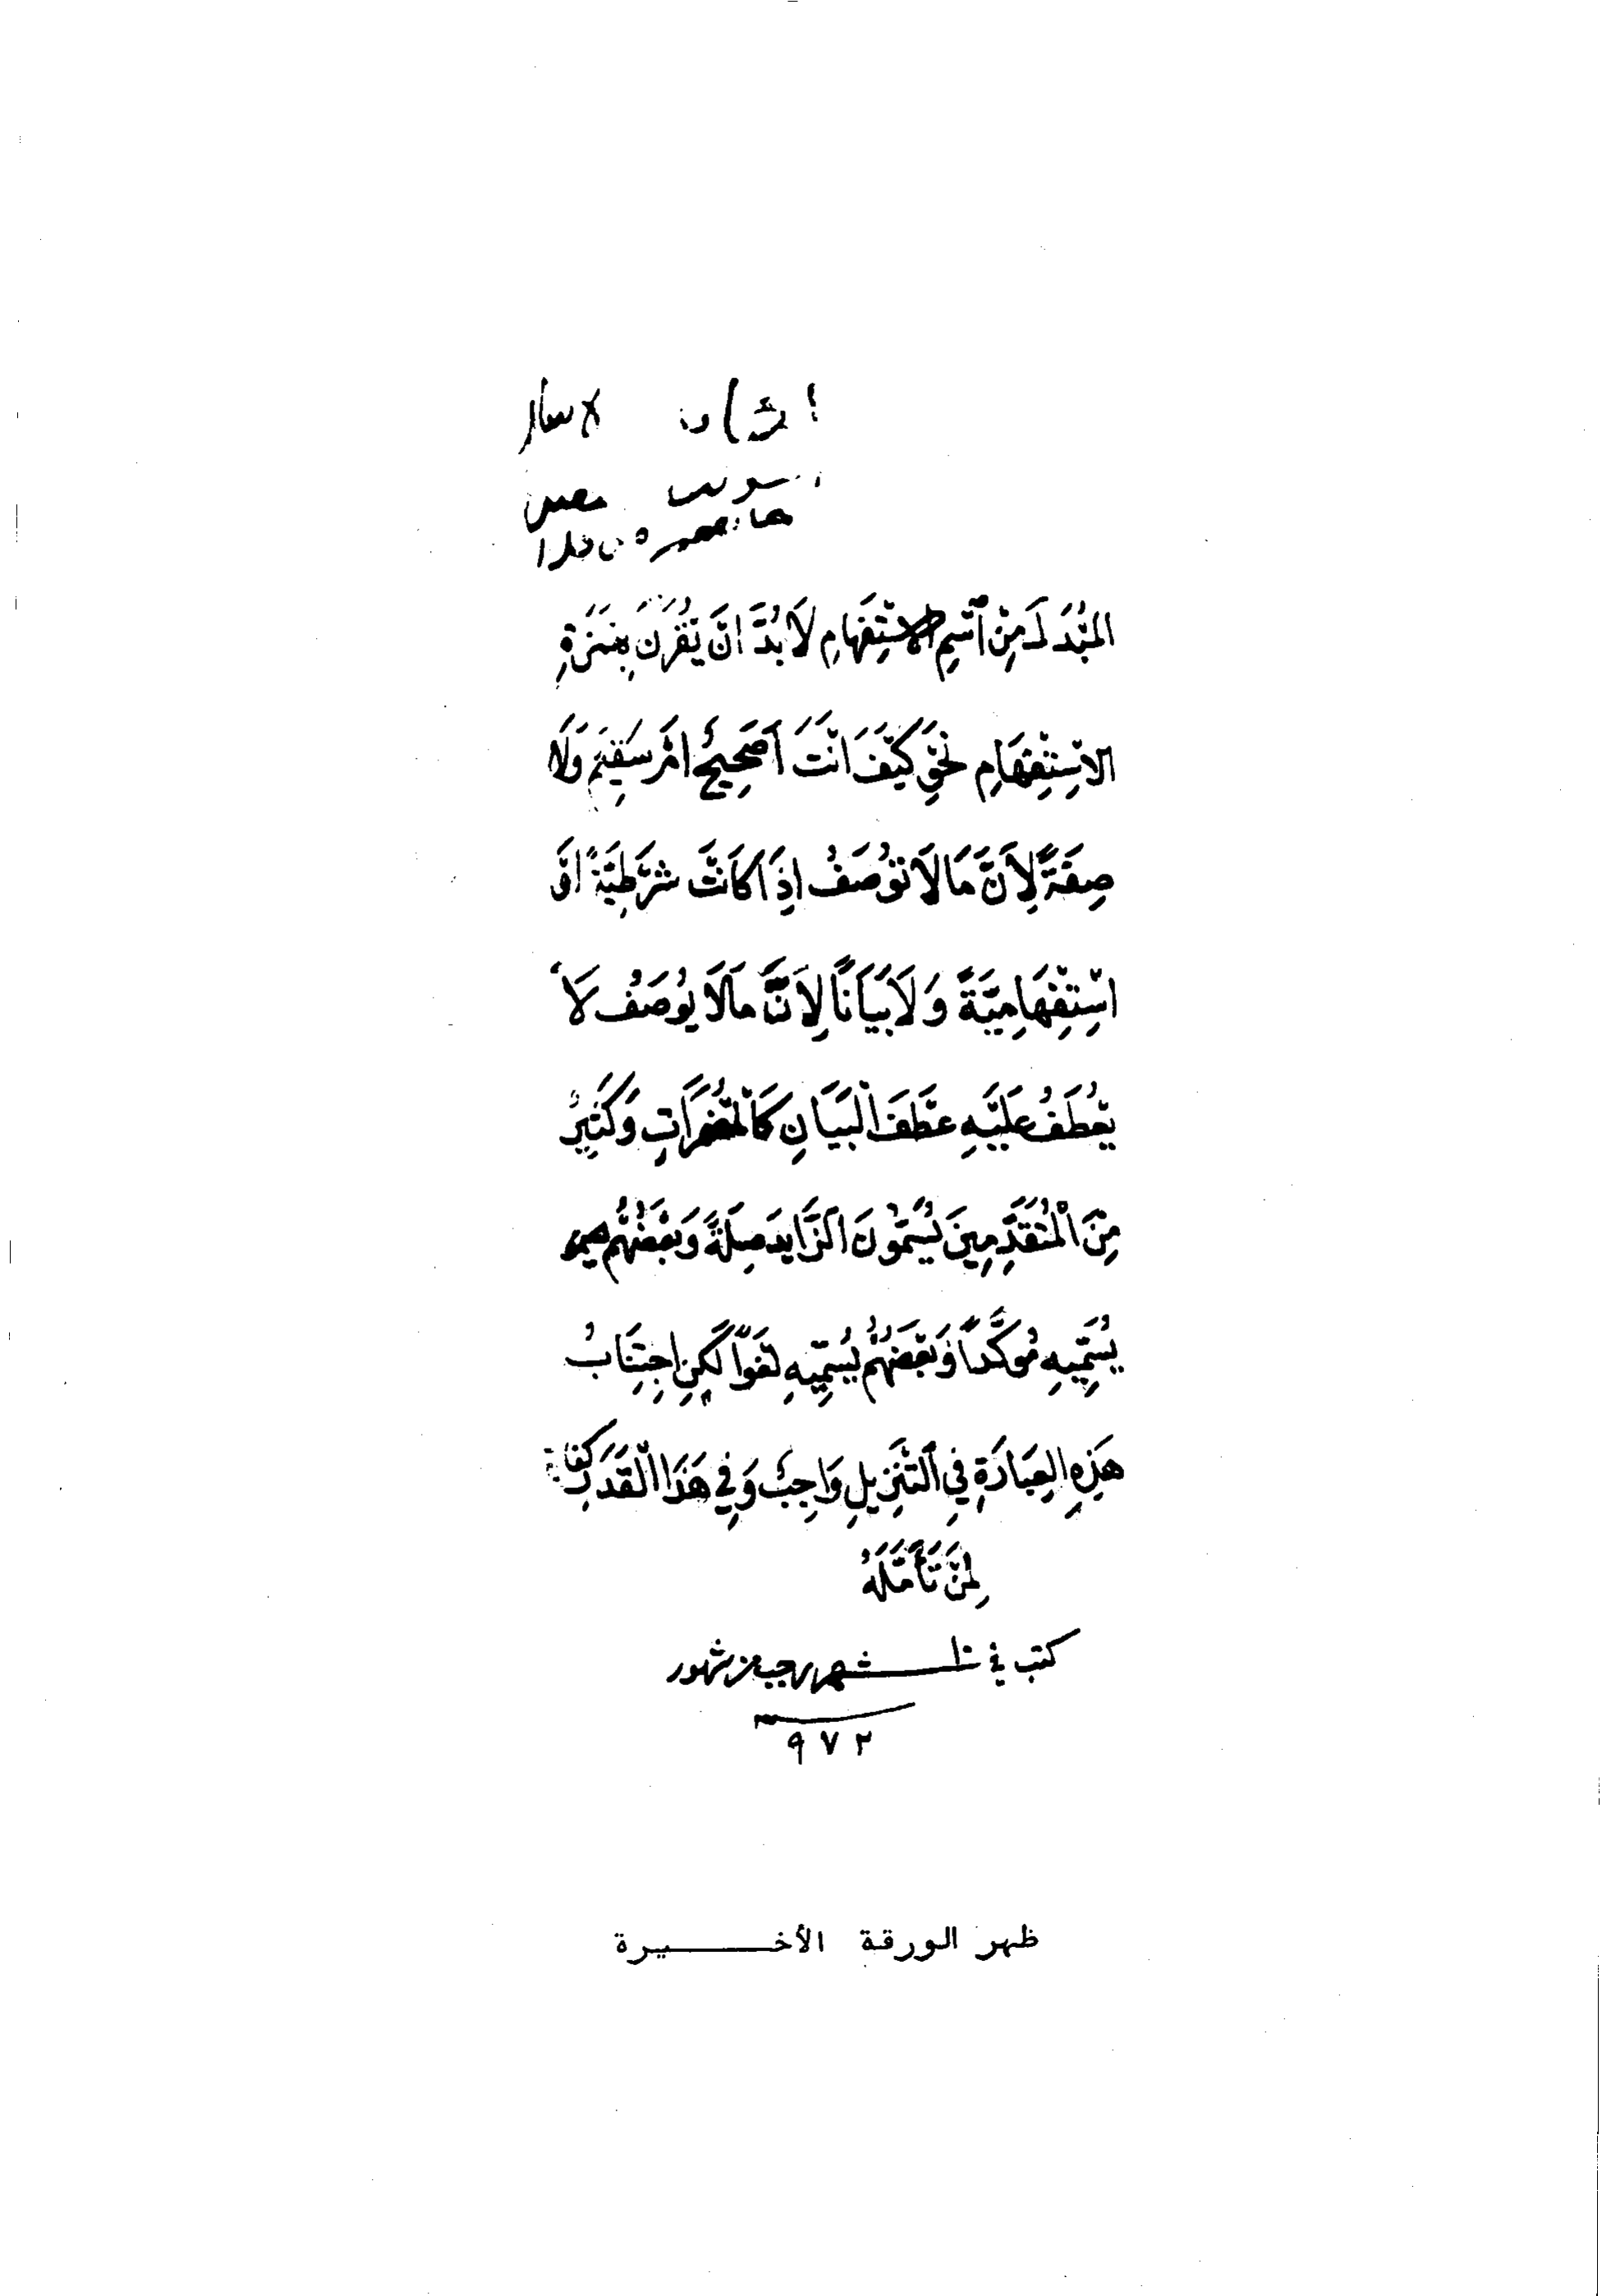 المُبْدَلَ مِنْ اسْمِ الاسْتِفْهَامِ لَا بُدَّ انْ يَقْرُنَ بِهَمْزَةِ
الاسْتِفْهَامِ نَحْوِ كَيْفَ انْتَ اَصَحِيحٌ امْ سَقِيمٌ وَلَا
صِفَةً لِاَنَّ مَا لَا تُوصَفُ اِذَا كَانَتْ شَرْطِيَّةً اَوْ
اسْتِفْهَامِيَّةً وَلَا بَيَانًا لِاَنَّ مَا لَا يُوصَفُ لَا
يُعْطَفُ عَلَيْهِ عَطْفَ الْبَيَانِ كَالْمُضْمَرَاتِ وَكَثِيرٌ
مِنَ الْمُتَقَدِّمِينَ يُسَمُّونَ الزَّايِدَ صِلَةً وَبَعْضُهُمْ
يُسَمِّيهِ مُوَكَّداً وَبَعْضُهُمْ يُسَمِّيهِ لَغْوًا لَكِنِ اجْتِنَابُ
هَذِهِ العِبَارَةِ فِي التَّنْزِيلِ وَاجِبٌ وَفِي هَذَا الْقَدْرِ كِفَايَةٌ
لِمَنْ تَأَمَّلَهُ
كتب في شهر رجب من شهور
٩٧٢
ظهر الورقة الأخيرة